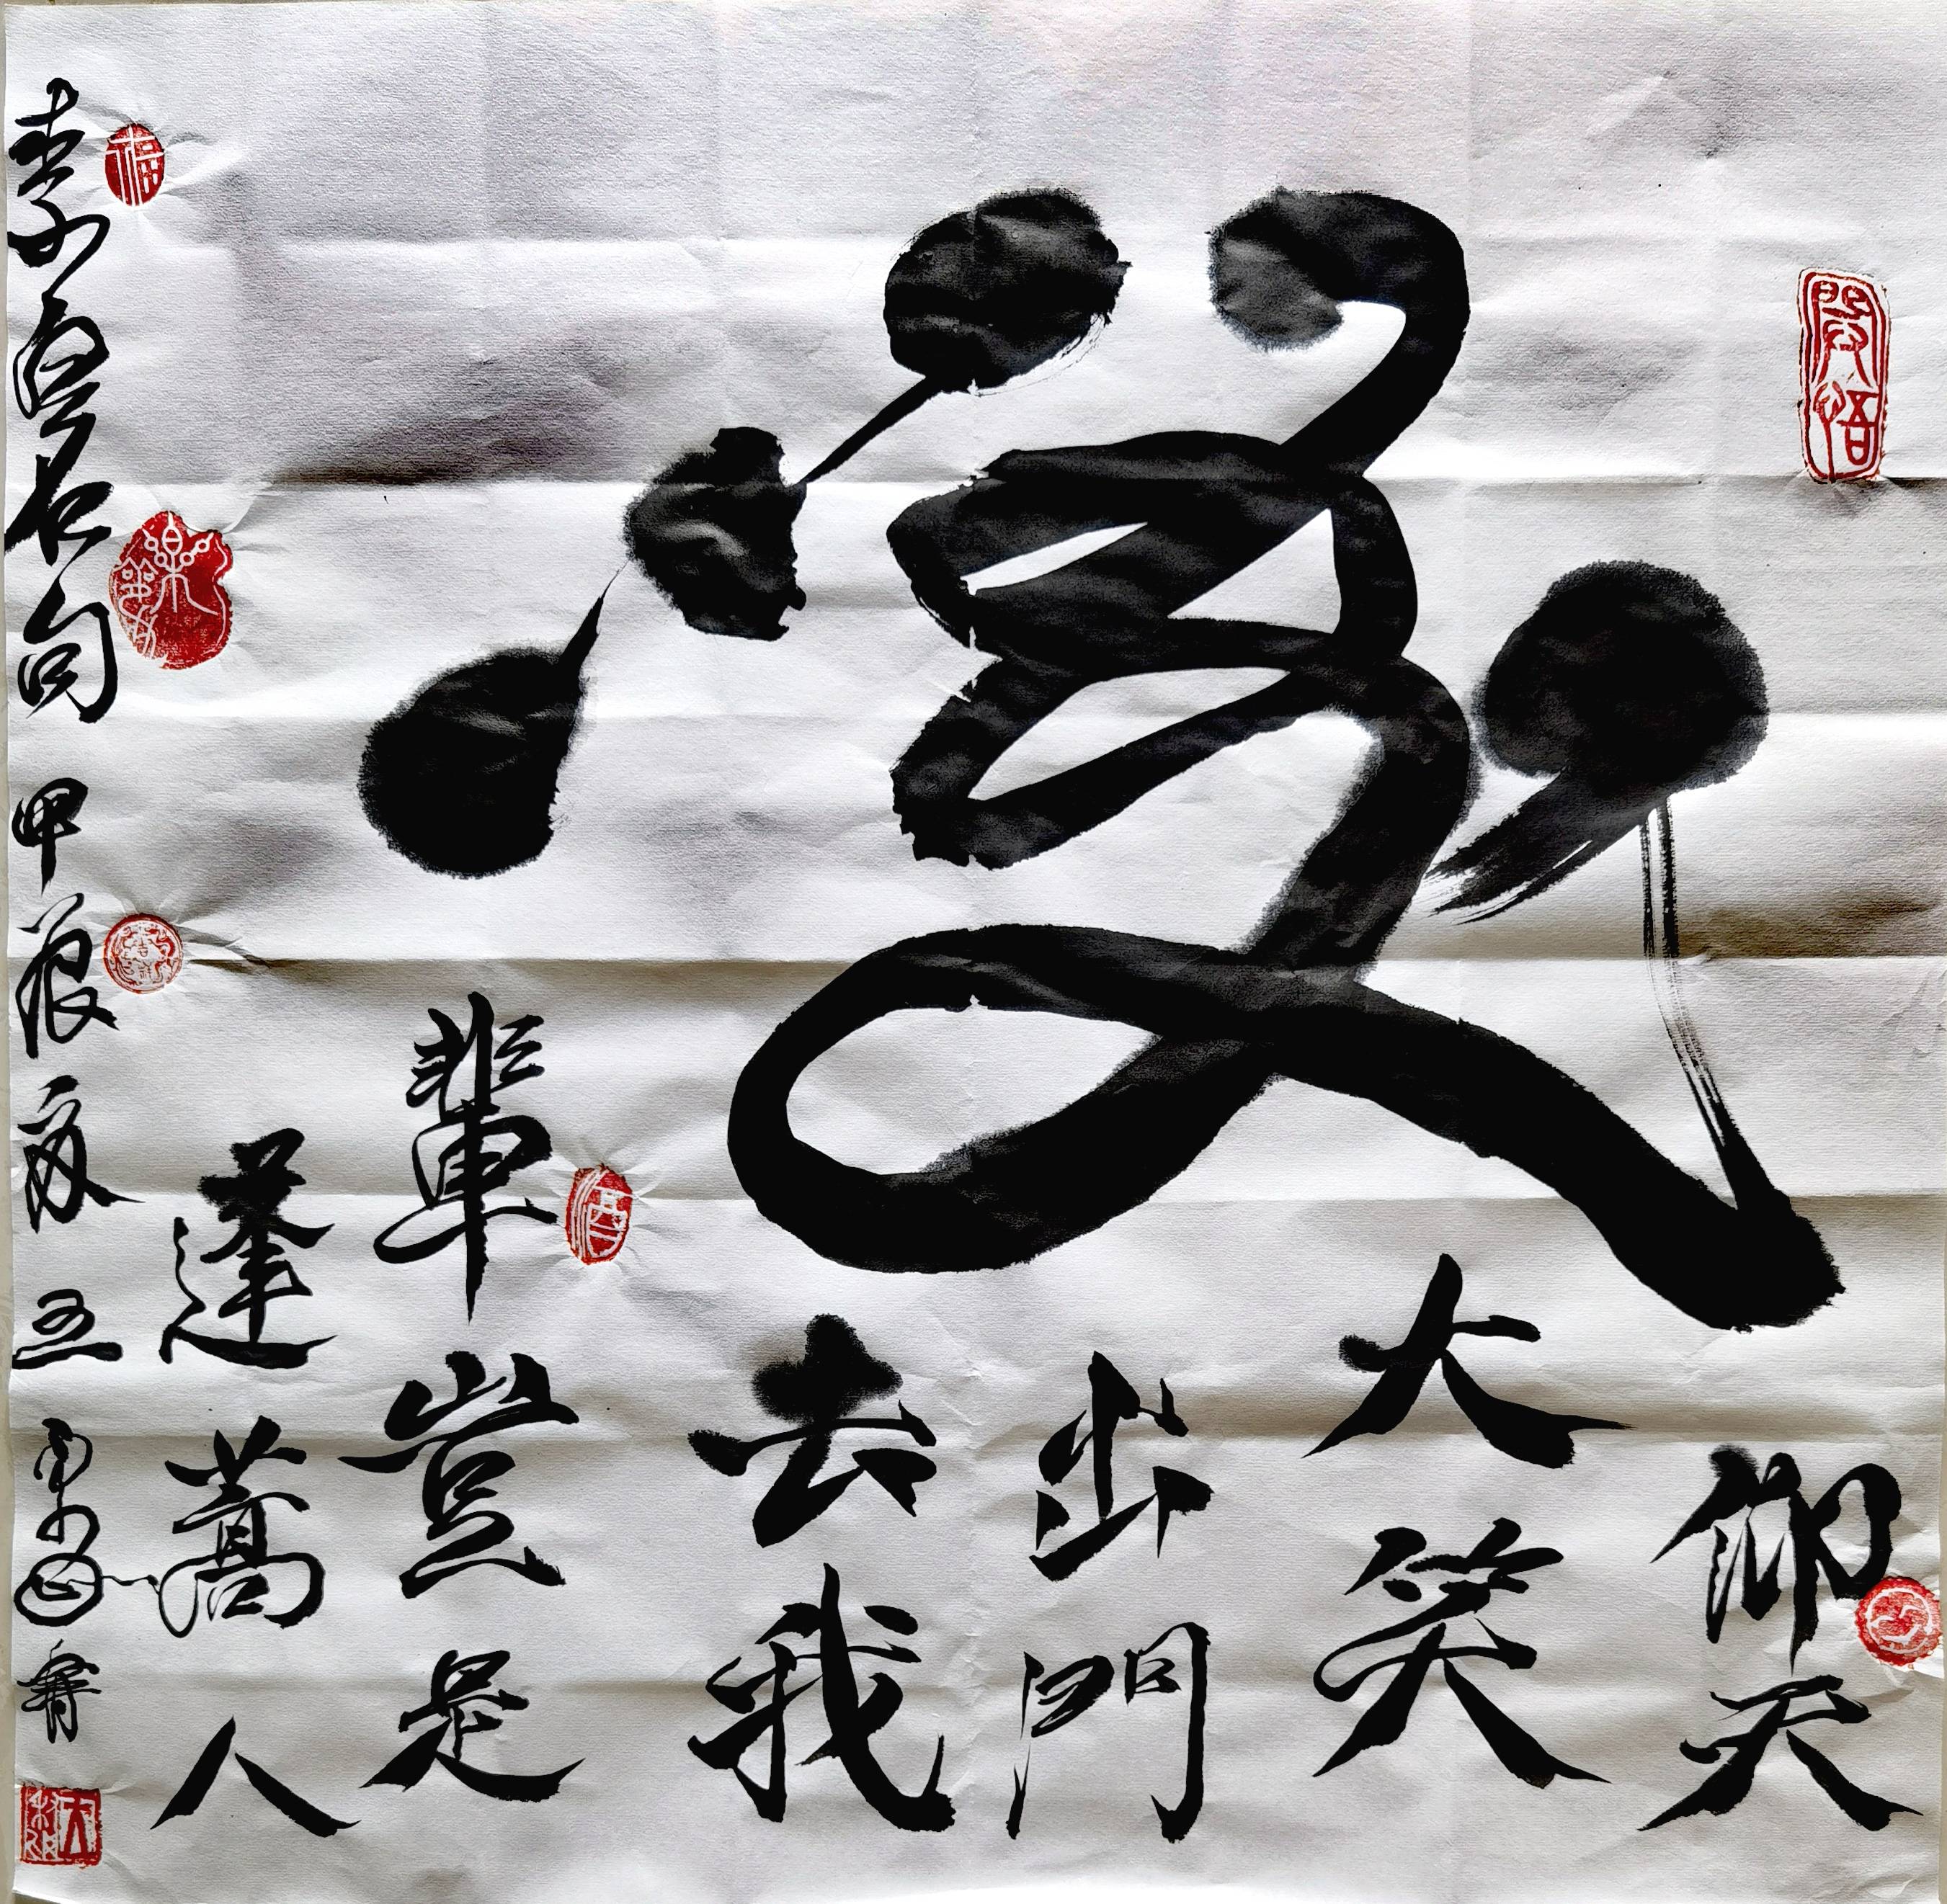 開悟
仰天
大笑
出門
去我
輩豈是
蓬蒿人
李白名句 甲辰夏
福
酒